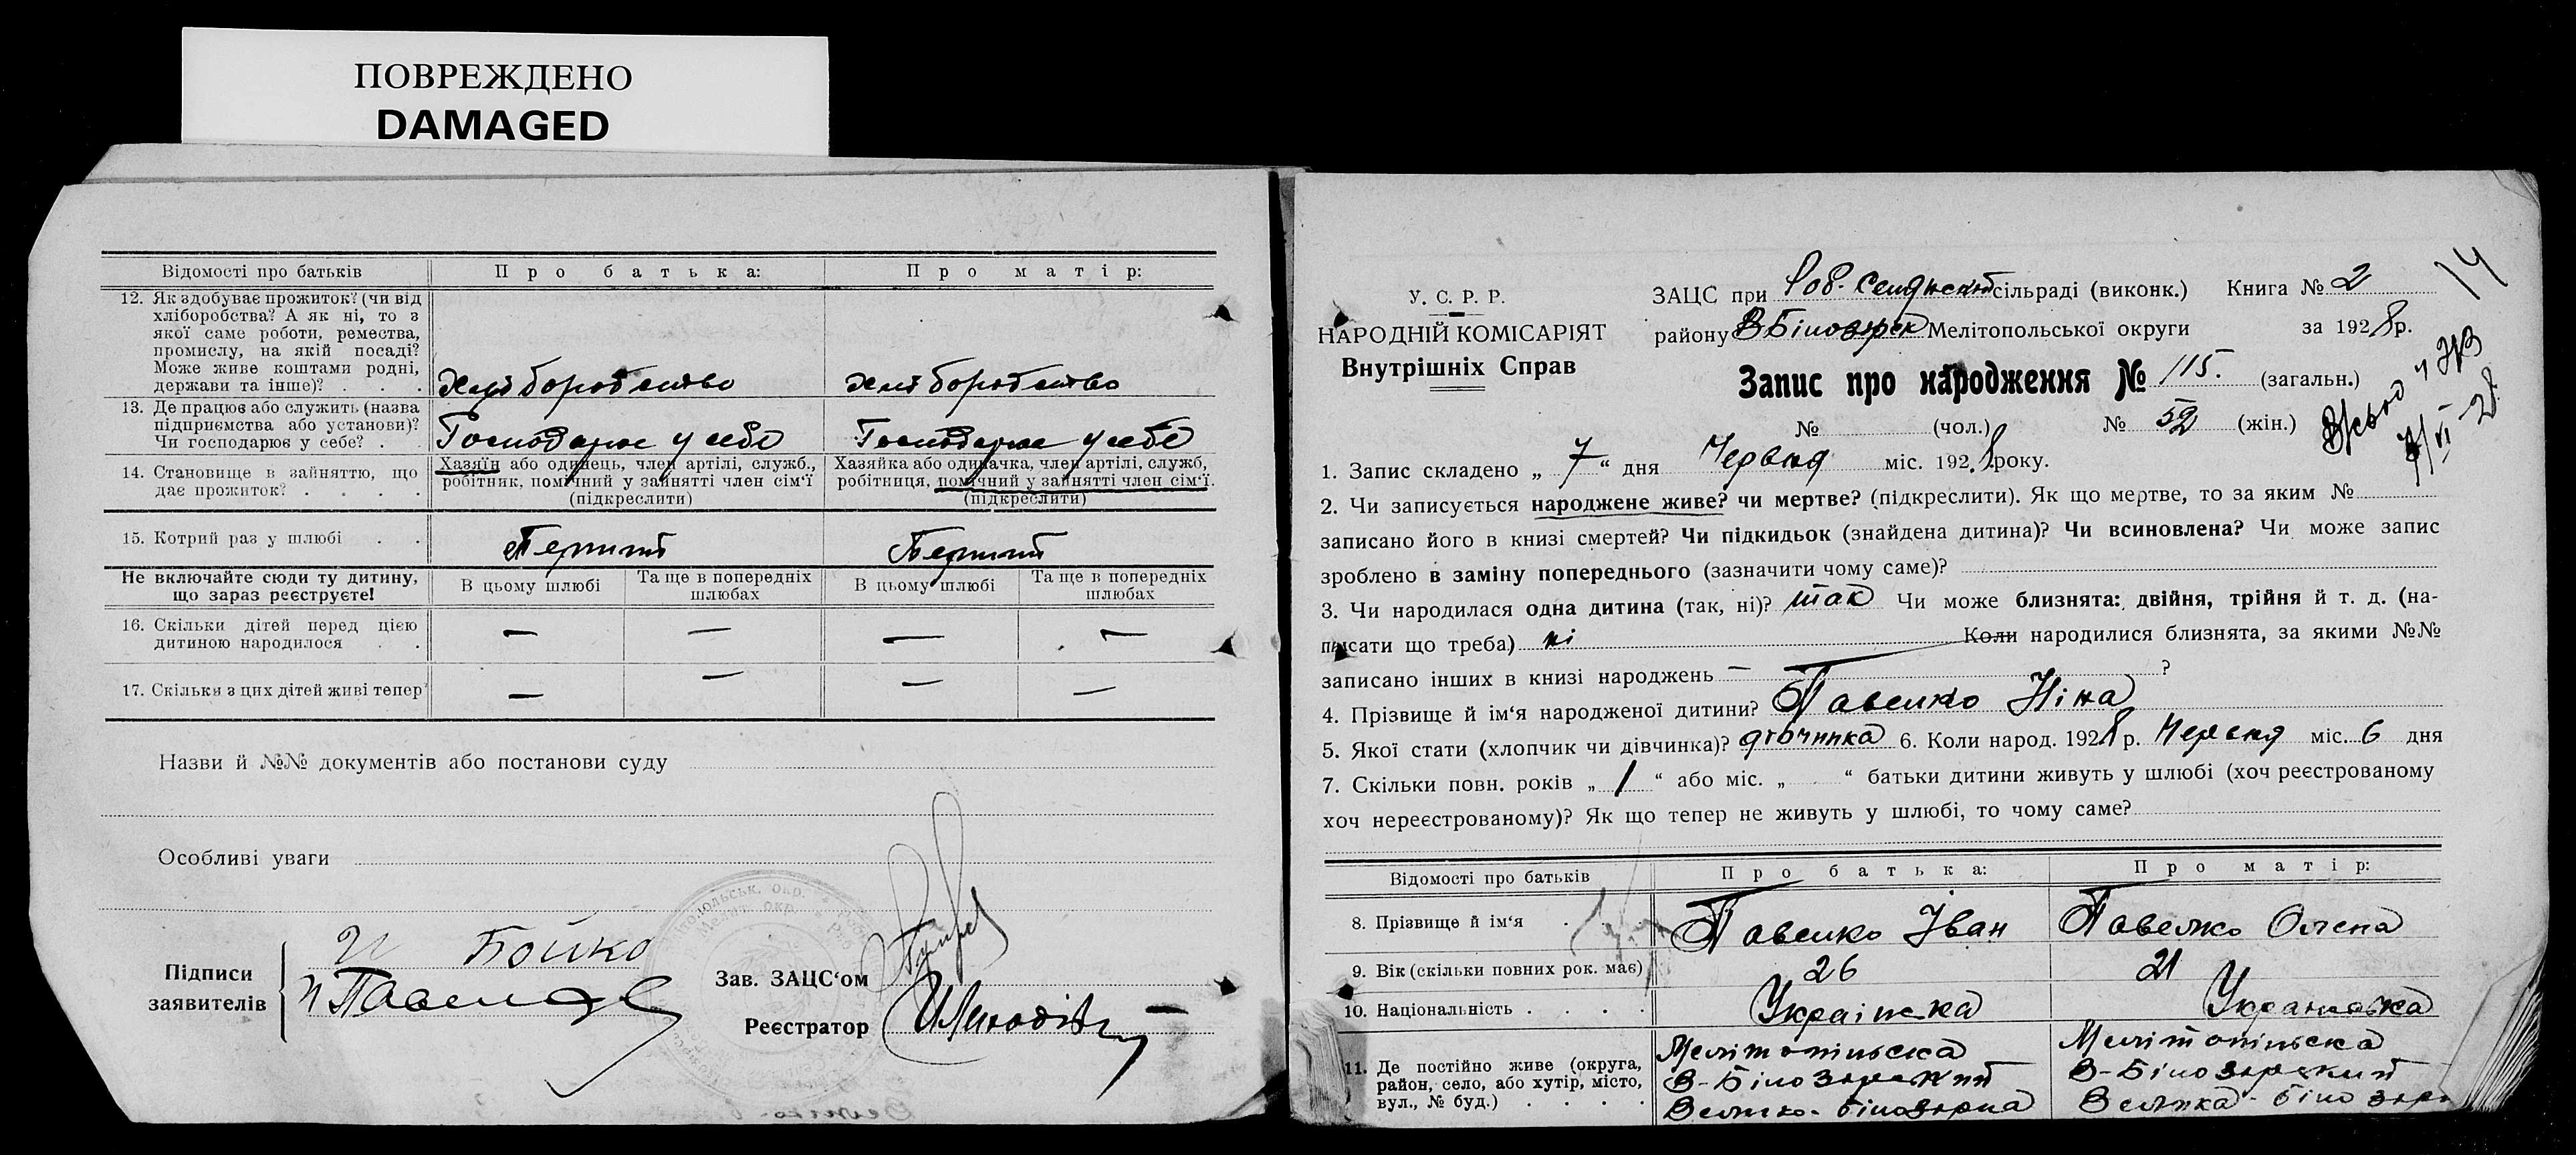 ПОВРЕЖДЕНО
DAMAGED
Відомості про батьків
Про батька:
Про матір:
12. Як здобуває прожиток? (чи від хліборобства? А як ні, то з якої саме роботи, ремества, промислу, на якій посаді? Може живе коштами родні, держави та інше)? . . .
Хліборобство
хліборобство
13. Де працює або служить (назва підприємства або установи)? Чи господарює у себе? .
Господарює у себе
Господарює у себе
14. Становище в зайняттю, що дає прожиток? . . . .
Хазяїн або одинець, член артілі, служб., робітник, помічний у зайнятті член сім'ї (підкреслити)
Хазяйка або одиначка, член артілі, служб, робітниця, помічний у зайнятті член сім'ї. (підкреслити)
15. Котрий раз у шлюбі . .
Перший
Перший
Не включайте сюди ту дитину, що зараз реєструєте!
В цьому шлюбі
Та ще в попередніх шлюбах
В цьому шлюбі
Та ще в попередніх шлюбах
16. Скільки дітей перед цією дитиною народилося . .
— — — —
17. Скільки з цих дітей живі тепер?
— — — —
Назви й №№ документів або постанови суду
Особливі уваги
Підписи заявителів
И Бойко
Зав. ЗАЦС'ом
Реєстратор
У. С. Р. Р.
НАРОДНІЙ КОМІСАРІЯТ
Внутрішніх Справ
ЗАЦС при сільраді (виконк.) Книга № 2
14
району В Білозірск Мелітопольської округи за 1928р.
Запис про народження № 115. (загальн.)
№ (чол.) № 52 (жін.)
7/VI-28
1. Запис складено „ 7 “ дня Червня міс. 1928 року.
2. Чи записується народжене живе? чи мертве? (підкреслити). Як що мертве, то за яким №
записано його в книзі смертей? Чи підкидьок (знайдена дитина)? Чи всиновлена? Чи може запис
зроблено в заміну попереднього (зазначити чому саме)?
3. Чи народилася одна дитина (так, ні)? так Чи може близнята: двійня, трійня й т. д. (на-
писати що треба) ні Коли народилися близнята, за якими №№
записано інших в книзі народжень — ?
4. Прізвище й ім'я народженої дитини? Павелко Ніна
5. Якої стати (хлопчик чи дівчинка)? дівчинка 6. Коли народ. 1928 р. Червня міс. 6 дня
7. Скільки повн. років „ 1 “ або міс. „ “ батьки дитини живуть у шлюбі (хоч реєстрованому
хоч нереєстрованому)? Як що тепер не живуть у шлюбі, то чому саме?
Відомості про батьків
Про батька:
Про матір:
8. Прізвище й ім'я . .
Павелко Іван
Павелко Олена
9. Вік (скільки повних рок. має)
26
21
10. Національність . . . .
Українка
Українка
11. Де постійно живе (округа, район, село, або хутір, місто, вул., № буд.) . . . .
Мелітопільска
В-Білозірский
Велико-білозірка
Мелітопільска
В-Білозірский
Велика-білозір